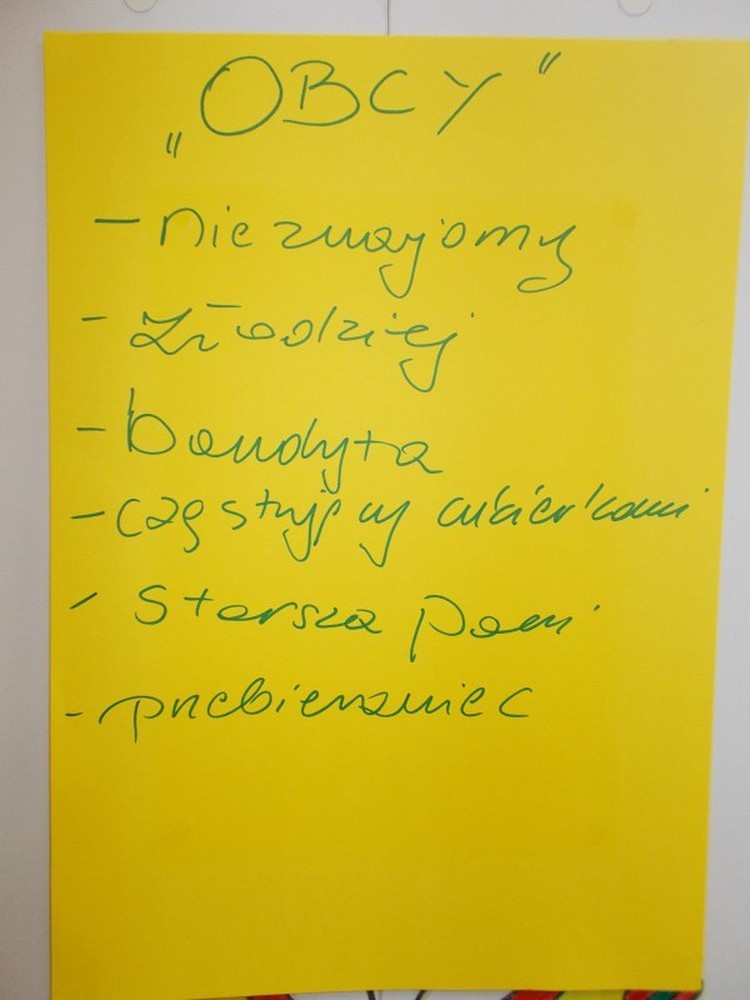 „OBCY”
- nieznajomy
- złodziej
- bandyta
- częstujący cukierkami
- starsza pani
- przebieraniec